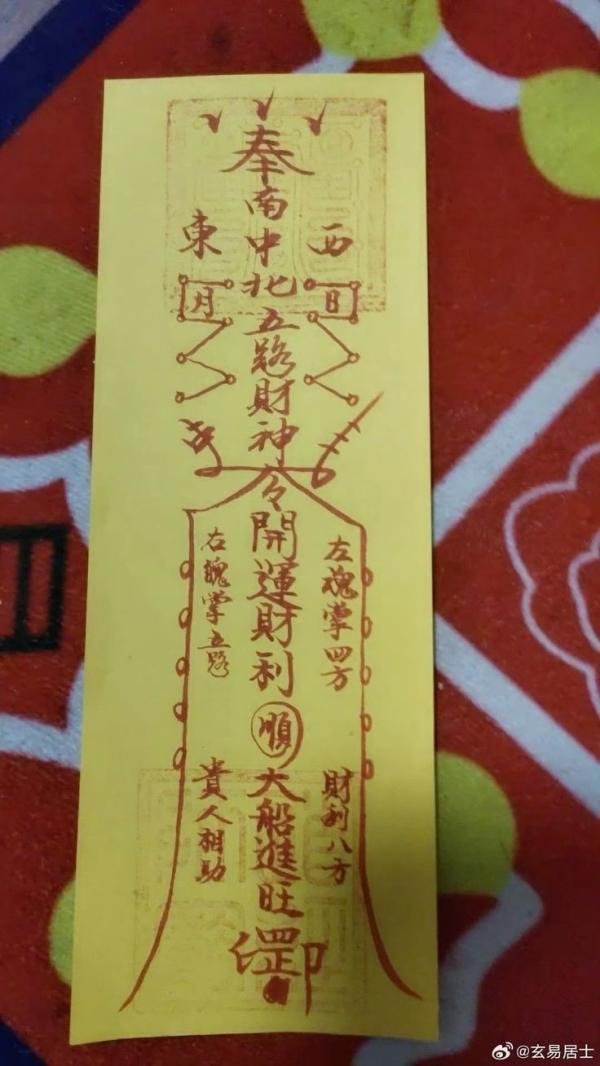 奉
南中北五路財神
東
西
月
日
令
開運財利
順
大船進旺
左魂掌四方
右魄掌五路
財利八方
貴人相助
@玄易居士